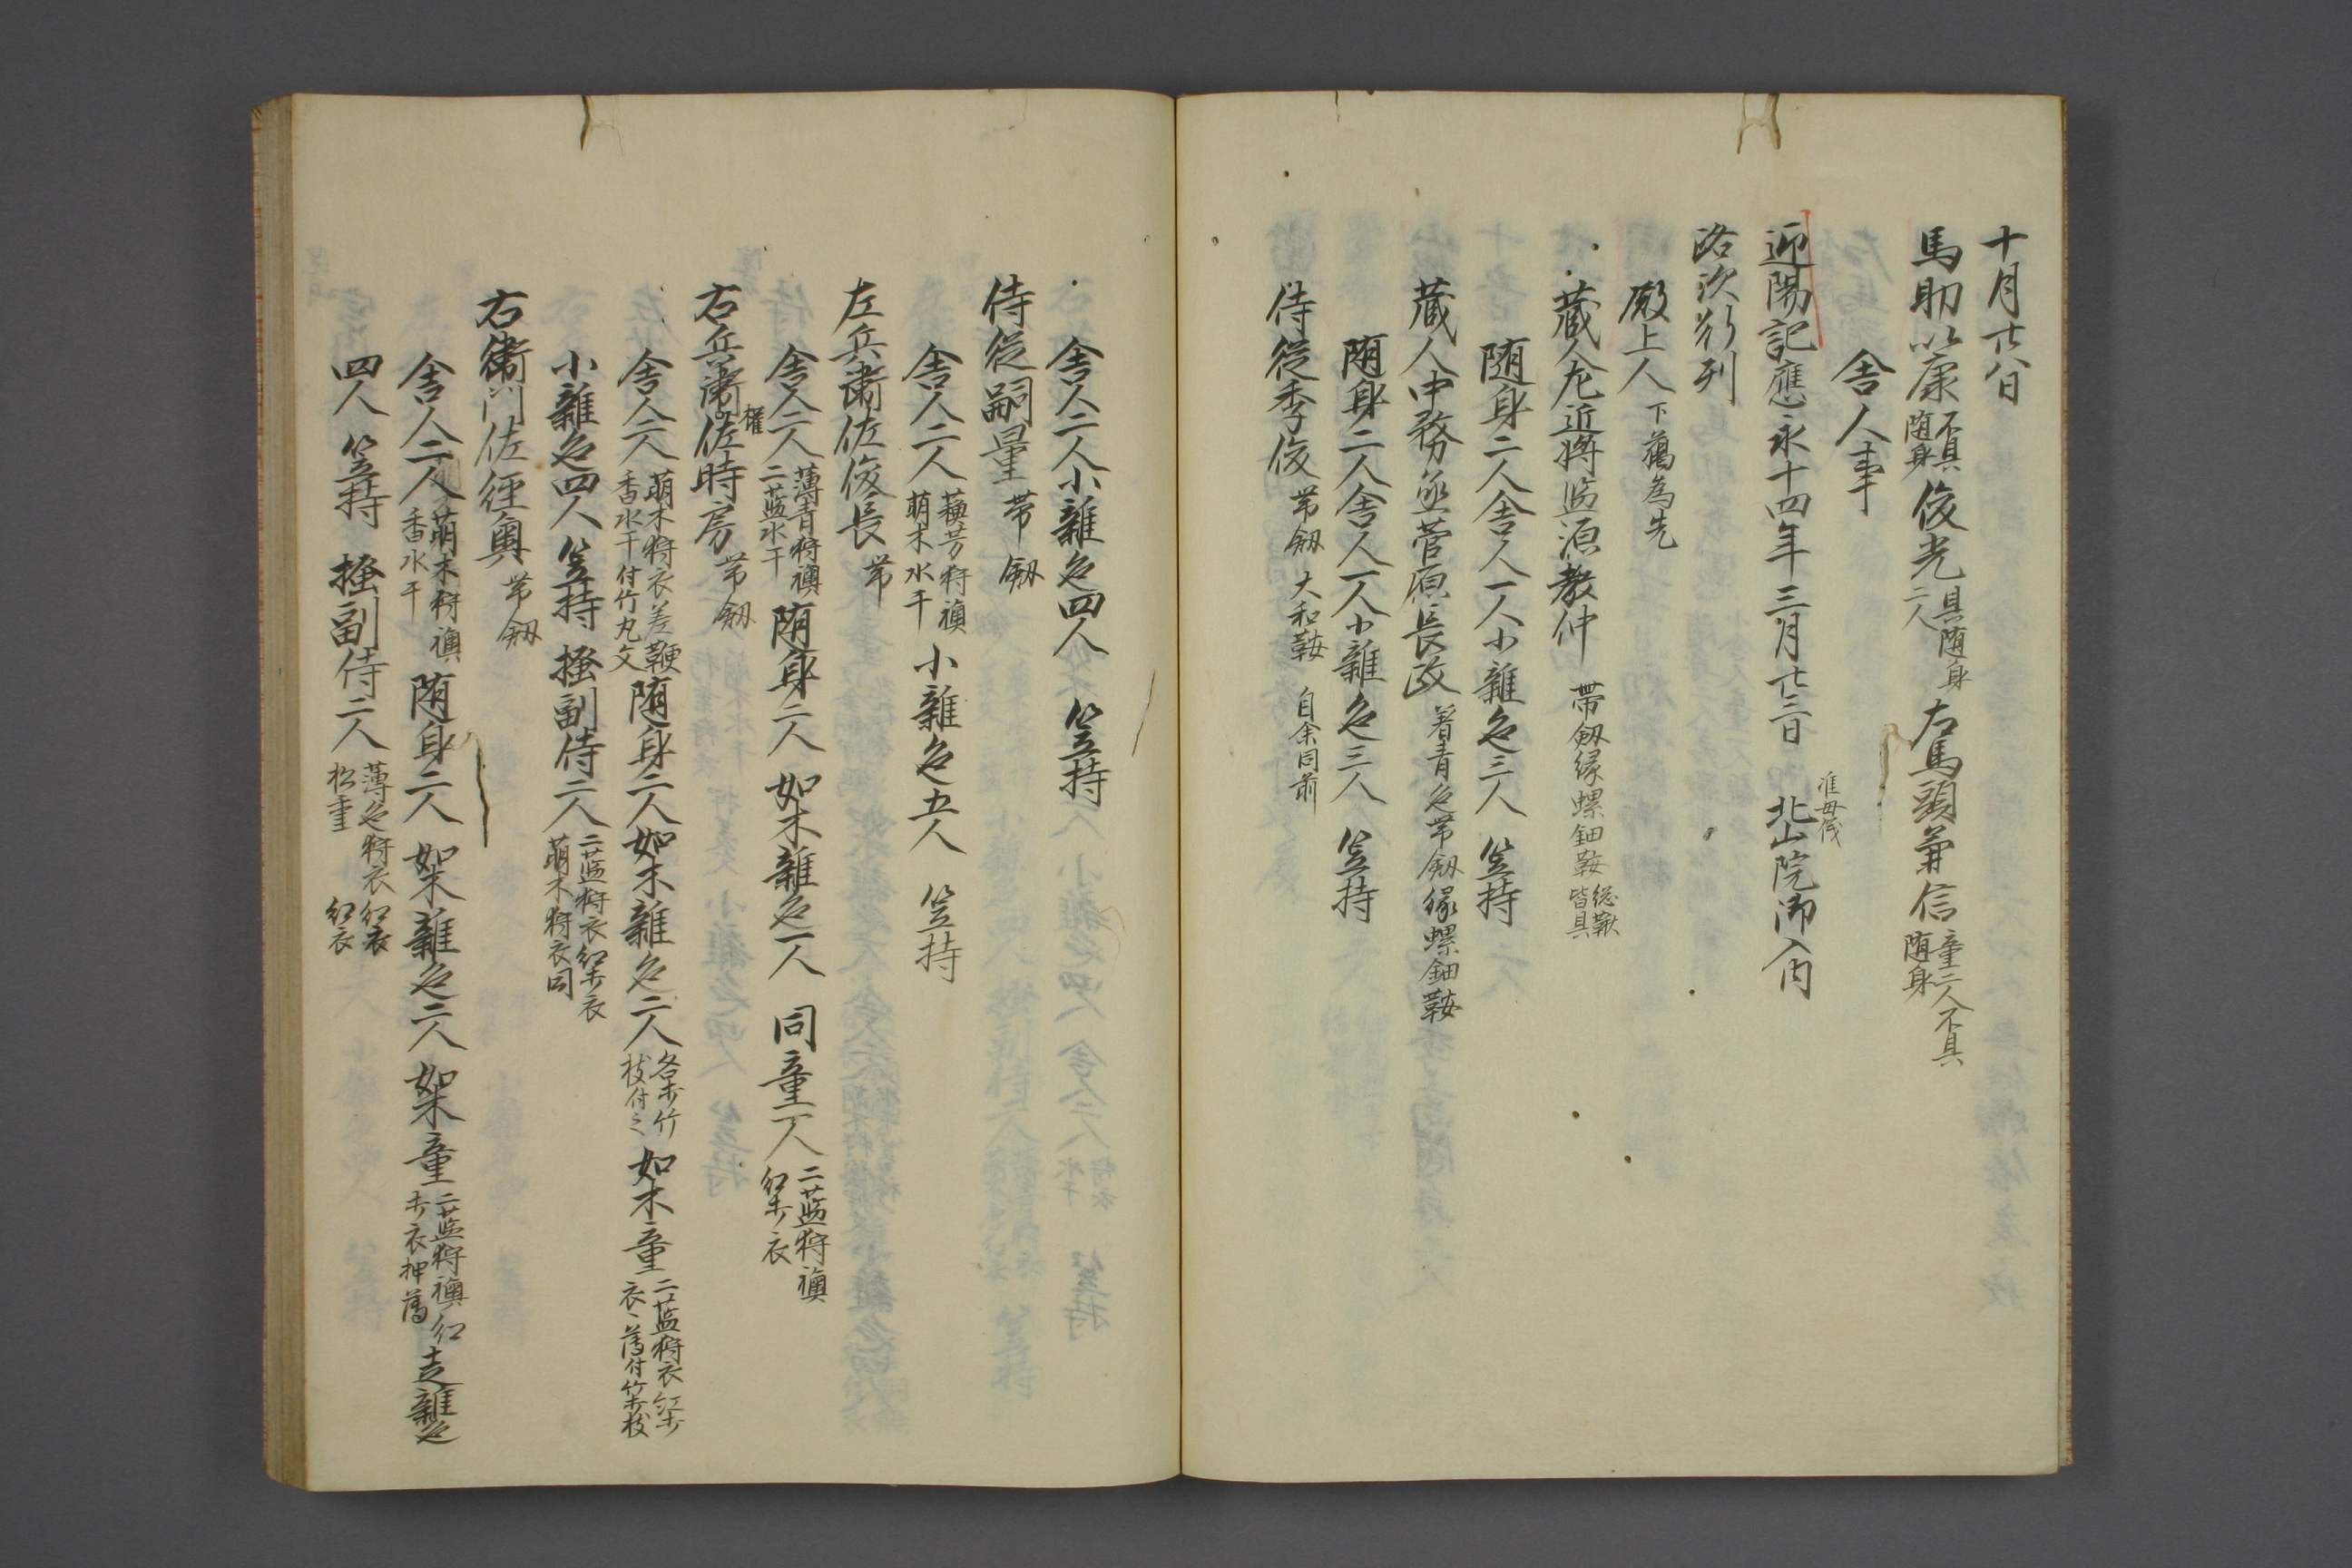 十月廿八日
馬助以康不具随身俊光具随身二人右馬頭兼信童二人不具随身
舎人事
迎陽記應永十四年三月廿三日准母儀北山院御入内
路次行列
殿上人下臈為先
蔵人左近将監源教仲帯剱縁螺鈿鞍総鞦皆具
随身二人舎人一人小雑色三人笠持
蔵人中務丞菅原長政着青色帯剱縁螺鈿鞍
随身二人舎人一人小雑色三人笠持
侍従季俊帯剱大和鞍自余同前
舎人二人小雑色四人笠持
侍従嗣量帯剱
舎人二人蘓芳狩襖萌木水干小雑色五人笠持
左兵衛佐俊長帯
舎人二人薄青狩襖二藍水干随身二人如木雑色一人同童一人二藍狩襖紅打衣
右兵衛権佐時房帯剱
舎人二人萌木狩衣差鞭香水干付竹丸文随身二人如木雑色二人各打竹枝付之如木童二藍狩衣紅打衣薄付竹打枝
小雑色四人笠持掻副侍二人二藍狩衣紅打衣萌木狩衣同
右衛門佐経興帯剱
舎人二人萌木狩襖香水干随身二人如木雑色二人如木童二藍狩襖紅打衣押薄走雑色
四人笠持掻副侍二人薄色狩衣紅衣松重紅衣